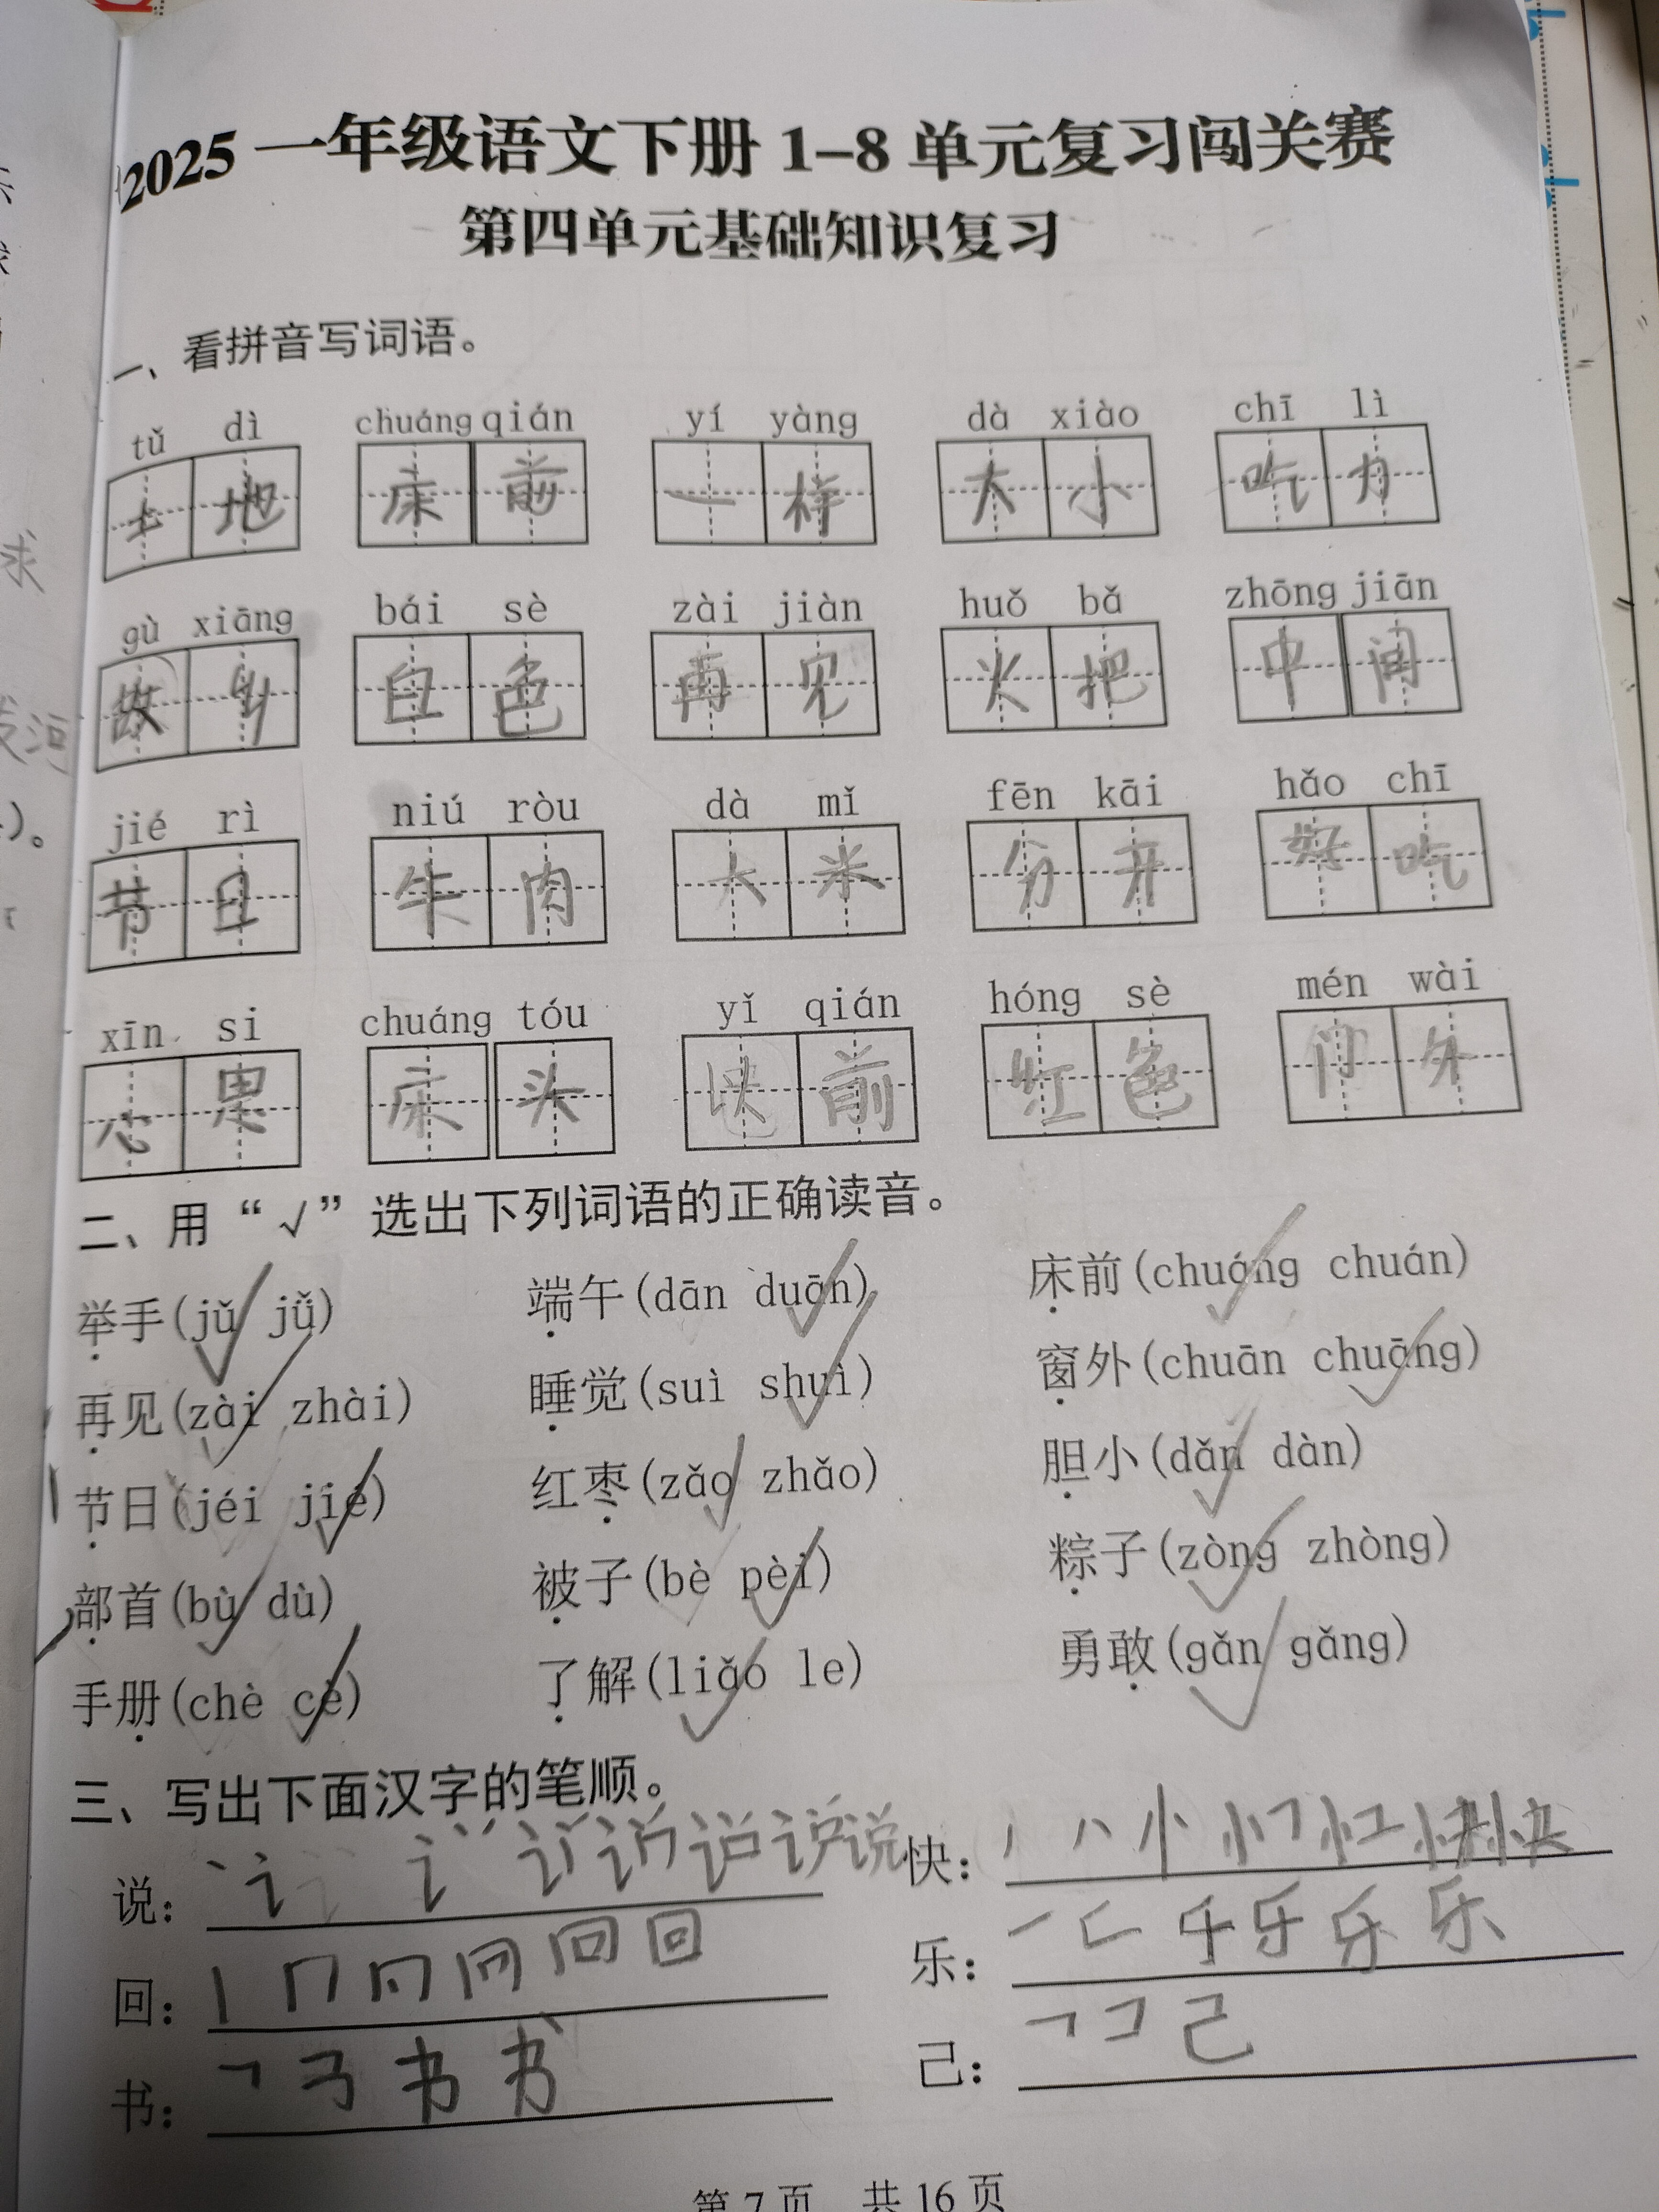 2025 一年级语文下册 1-8 单元复习闯关赛
第四单元基础知识复习
一、看拼音写词语。
tǔ dì chuáng qián yí yàng dà xiào chī lì
土地 床前 一样 大小 吃力
gù xiāng bái sè zài jiàn huǒ bǎ zhōng jiān
故乡 白色 再见 火把 中间
jié rì niú ròu dà mǐ fēn kāi hǎo chī
节日 牛肉 大米 分开 好吃
xīn si chuáng tóu yǐ qián hóng sè mén wài
心思 床头 以前 红色 门外
二、用“√”选出下列词语的正确读音。
举手(jǔ jǚ) 端午(dān duān) 床前(chuáng chuán)
再见(zài zhài) 睡觉(suì shuì) 窗外(chuān chuāng)
节日(jéi jié) 红枣(zǎo zhǎo) 胆小(dǎn dàn)
部首(bù dù) 被子(bè pèi) 粽子(zòng zhòng)
手册(chè cè) 了解(liǎo le) 勇敢(gǎn gǎng)
三、写出下面汉字的笔顺。
说： 说 快： 快
回： 回 乐： 乐
书： 书 己： 己
第 7 页 共 16 页